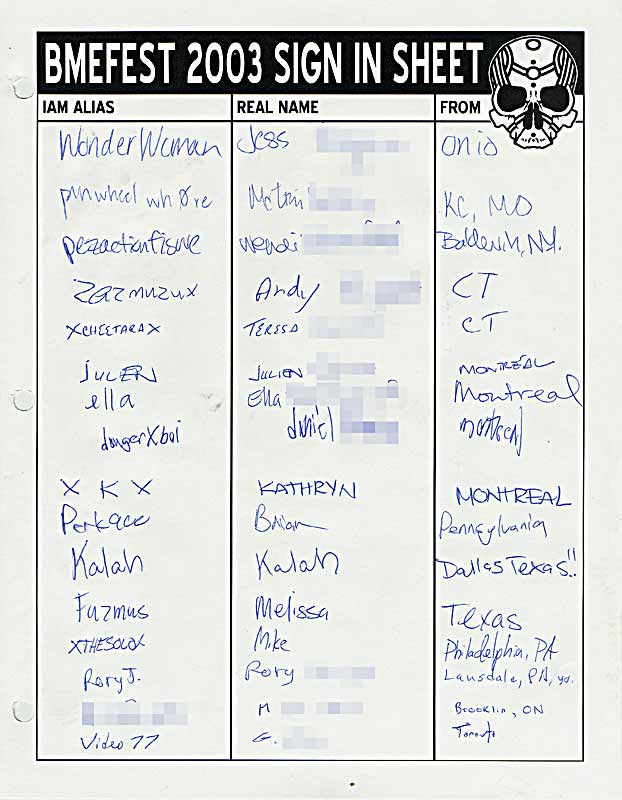 BMEFEST 2003 SIGN IN SHEET
IAM ALIAS REAL NAME FROM
WonderWoman Jess Ohio
pinwheel whøre KC, MO
pezactionfigure Wendi Baldwin, NY.
Zazmuzux Andy CT
xCHEETARAx TERESA CT
JULIEN JULIEN MONTRÉAL
ella Ella Montreal
dangerXboi daniel montreal
X K X KATHRYN MONTREAL
Brian Pennsylvania
Kalah Kalah Dallas Texas!!
Fuzmus Melissa Texas
XTHESOLOX Mike Philadelphia, PA
Rory J. Rory Lansdale, PA, yo.
M Brooklin, ON
Video 77 G. Toronto